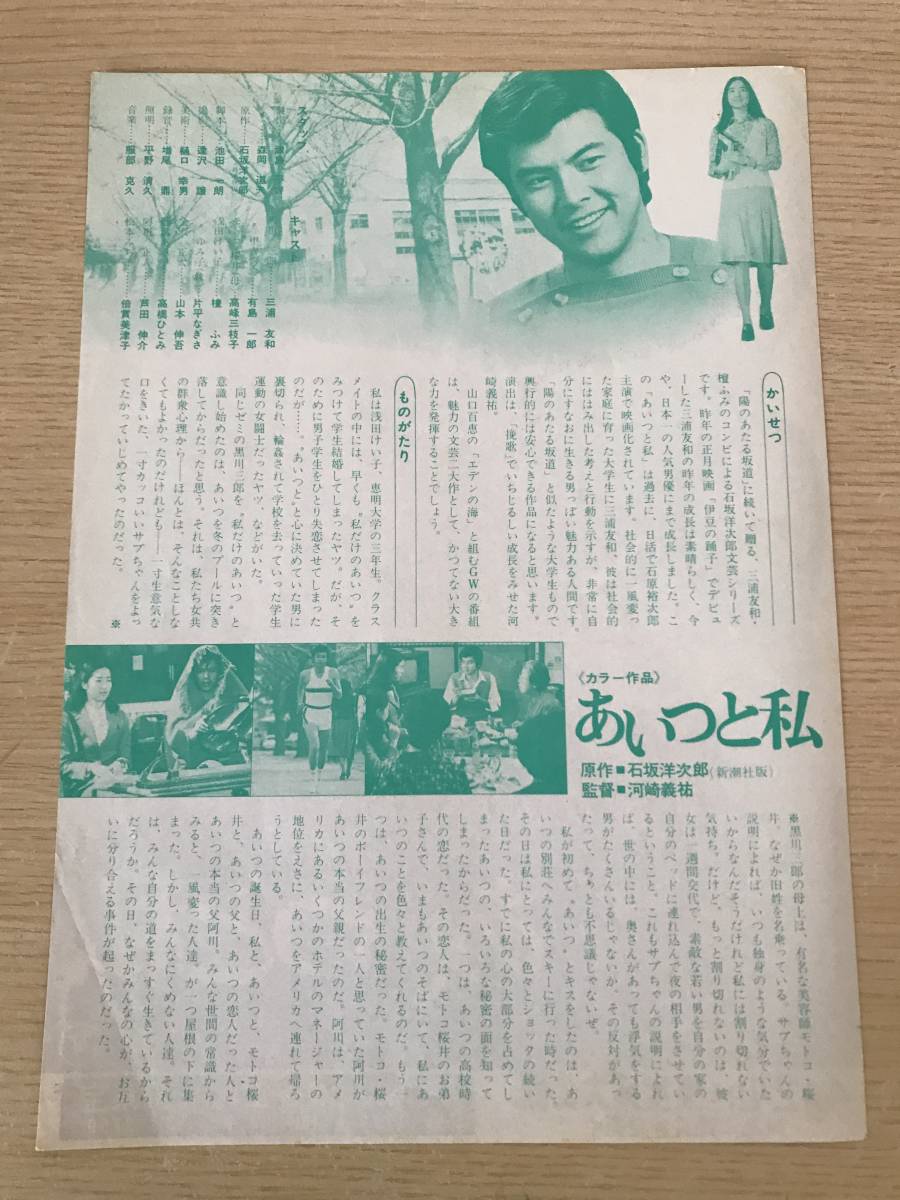 スタッフ
森岡 道夫
原作 石坂洋次郎
脚本 池田一朗
逢沢 譲
美術 樋口 幸男
録音 増尾 鼎
照明 平野 清久
音楽 服部 克久
キャスト
三浦 友和
有島 一郎
高峰三枝子
檀 ふみ
片平なぎさ
山本 伸吾
高橋ひとみ
芦田 伸介
倍賞美津子
かいせつ
「陽のあたる坂道」に続いて贈る、三浦友和・
檀ふみのコンビによる石坂洋次郎文芸シリーズ
です。昨年の正月映画「伊豆の踊子」でデビュ
ーした三浦友和の昨年の成長は素晴らしく、今
や、日本一の人気男優にまで成長しました。こ
の「あいつと私」は過去に、日活で石原裕次郎
主演で映画化されています。社会的に一風変っ
た家庭に育った大学生に三浦友和、彼は社会的
にははみ出した考えと行動を示すが、非常に自
分にすなおに生きる男っぽい魅力ある人間です。
「陽のあたる坂道」と似たような大学生もので
興行的には安心できる作品になると思います。
演出は、「挽歌」でいちじるしい成長をみせた河
崎義祐。
山口百恵の「エデンの海」と組むGWの番組
は、魅力の文芸二大作として、かつてない大き
な力を発揮することでしょう。
ものがたり
私は浅田けい子、恵明大学の三年生。クラス
メイトの中には、早くも〝私だけのあいつ〟を
みつけて学生結婚してしまったヤツ。だが、そ
のために男子学生をひとり失恋させてしまった
のだが……。〝あいつ〟と心に決めていた男に
裏切られ、輪姦されて学校を去っていった学生
運動の女闘士だったヤツ、などがいた。
同じゼミの黒川三郎を〝私だけのあいつ〟と
意識し始めたのは、あいつを冬のプールに突き
落してからだったと思う。それは、私たち女共
の群衆心理から――ほんとは、そんなことしな
くてもよかったのだけれども――一寸生意気な
口をきいた、一寸カッコいいサブちゃんをよっ
てたかっていじめてやったのだった。
※
《カラー作品》
あいつと私
原作■石坂洋次郎(新潮社版)
監督■河崎義祐
※黒川三郎の母上は、有名な美容師モトコ・桜
井。なぜか旧姓を名乗っている。サブちゃんの
説明によれば、いつも独身のような気分でいた
いからなんだそうだけれど私には割り切れない
気持ち。だけど、もっと割り切れないのは、彼
女は一週間交代で、素敵な若い男を自分の家の
自分のベッドに連れ込んで夜の相手をさせてい
るということ、これもサブちゃんの説明によれ
ば、世の中には、奥さんがあっても浮気をする
男がたくさんいるじゃないか、その反対があっ
たって、ちっとも不思議じゃないぜ。
私が初めて〝あいつ〟とキスをしたのは、あ
いつの別荘へみんなでスキーに行った時だった。
その日は私にとっては、色々とショックの続い
た日だった。すでに私の心の大部分を占めてし
まったあいつの、いろいろな秘密の面を知って
しまったからだった。一つは、あいつの高校時
代の恋だった。その恋人は、モトコ桜井のお弟
子さんで、いまもあいつのそばにいて、私にあ
いつのことを色々と教えてくれるのだ。もう一
つは、あいつの出生の秘密だった。モトコ・桜
井のボーイフレンドの一人と思っていた阿川が
あいつの本当の父親だったのだ。阿川は、アメ
リカにあるいくつかのホテルのマネージャーの
地位をえさに、あいつをアメリカへ連れて帰ろ
うとしている。
あいつの誕生日、私と、あいつと、モトコ桜
井と、あいつの父と、あいつの恋人だった人と
あいつの本当の父阿川。みんな世間の常識から
みると、一風変った人達。が一つ屋根の下に集
まった。しかし、みんなにくめない人達。それ
は、みんな自分の道をまっすぐ生きているから
だろうか。その日、なぜかみんなの心が、お互
いに分り合える事件が起ったのだった。